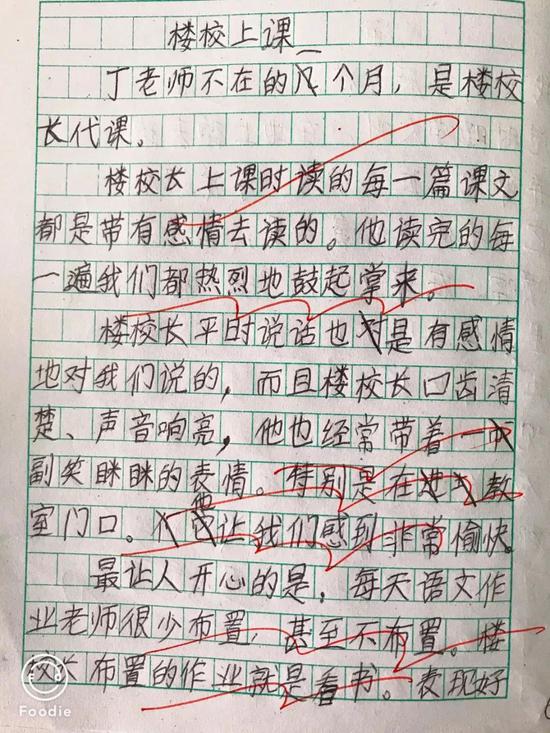 楼校上课
丁老师不在的几个月，是楼校
长代课。
楼校长上课时读的每一篇课文
都是带有感情去读的。他读完的每
一遍我们都热烈地鼓起掌来。
楼校长平时说话也是有感情
地对我们说的，而且楼校长口齿清
楚、声音响亮，他也经常带着一
副笑眯眯的表情。特别是在教
室门口。他让我们感到非常愉快。
最让人开心的是，每天语文作
业老师很少布置，甚至不布置。楼
校长布置的作业就是看书。表现好
Foodie